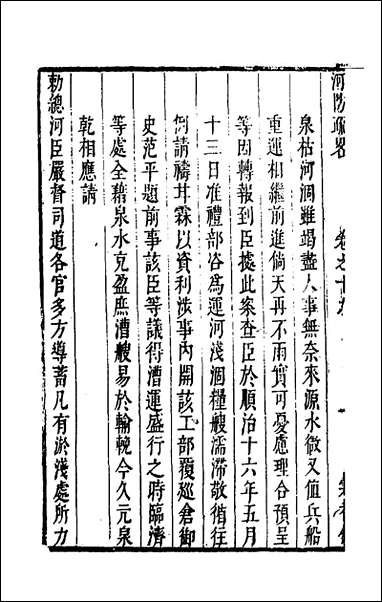 河防疏畧
卷之十九
泉枯河涸雖竭盡人事無奈來源水微又值兵船
重運相繼前進倘天再不雨實可憂慮理合預呈
等因轉報到臣據此案查臣於順治十六年五月
十三日准禮部咨為運河淺涸糧艘濡滯敬循往
例請禱甘霖以資利涉事內開該工部覆巡倉御
史范平題前事該臣等議得漕運盛行之時臨濟
等處全藉泉水充盈庶漕艘易於輸輓今久亢泉
乾相應請
勅總河臣嚴督司道各官多方導蓄凡有淤淺處所力